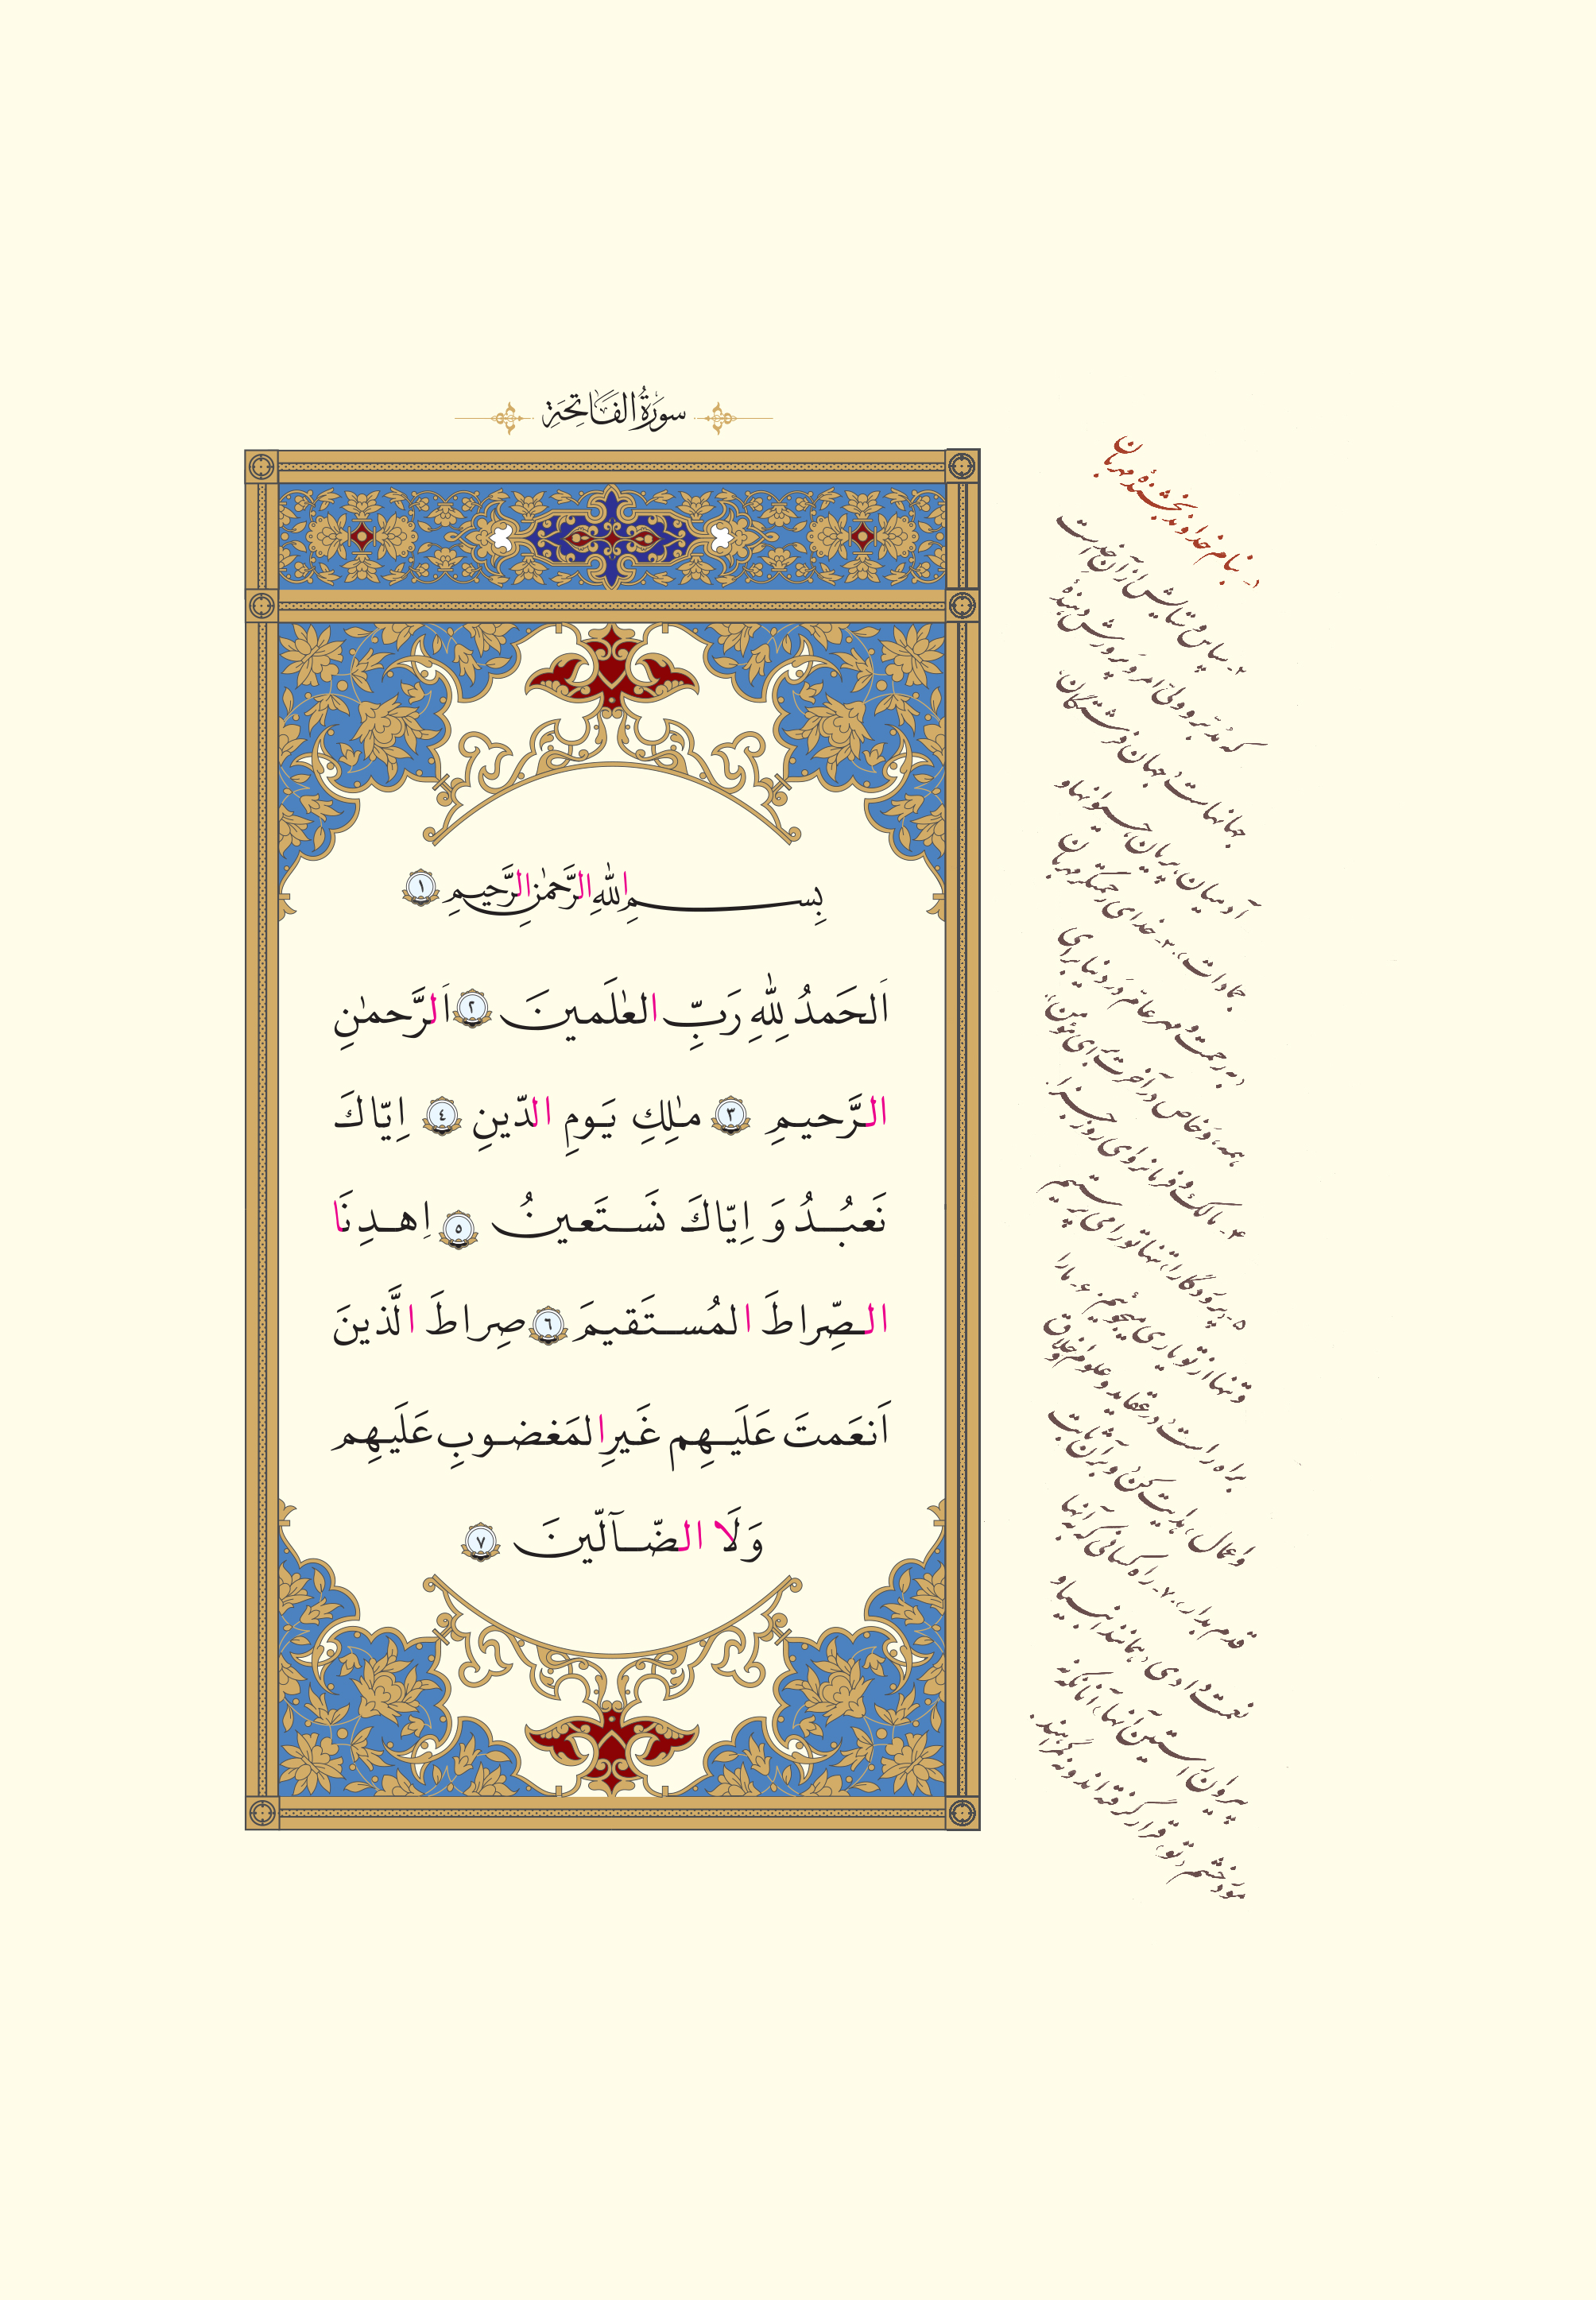 سورَةُ الفَاتِحَةِ
بِسمِ اللّٰهِ الرَّحمٰنِ الرَّحيمِ ١
اَلحَمدُ لِلّٰهِ رَبِّ العٰلَمينَ ٢ اَلرَّحمٰنِ
الرَّحيمِ ٣ مٰلِكِ يَومِ الدّينِ ٤ اِيّاكَ
نَعبُدُ وَ اِيّاكَ نَستَعينُ ٥ اِهدِنَا
الصِّراطَ المُستَقيمَ ٦ صِراطَ الَّذينَ
اَنعَمتَ عَلَيهِم غَيرِ المَغضوبِ عَلَيهِم
وَلَا الضّآلّينَ ٧
۱- بنام خداوند بخشندهٔ مهربان
۲- سپاس و ستایش از آن خداست
که مُدبّر و ولیّ امر و پرورش دهندهٔ
جهانهاست (جهان فرشتگان،
آدمیان، پریان، حیوانها و
جمادات). ۳- خدای رحمتگر مهربان
(به رحمت و مهر عامّ در دنیا برای
همه، و خاص در آخرت برای مؤمنین)
۴- مالک و فرمانروای روز جزا.
۵- پروردگارا، تنها تو را می پرستیم
و تنها از تو یاری می‌جوئیم. ۶- ما را
براه راست (در عقاید و علوم و اخلاق
و اعمال) هدایت کن (و بر آن ثابت
قدم بدار). ۷- راه کسانی که به آنها
نعمت دادی (همانند انبیا و
پیروان راستین آنها)، آنان که نه
مورد خشم (تو) قرار گرفته اند و نه گمراهند.